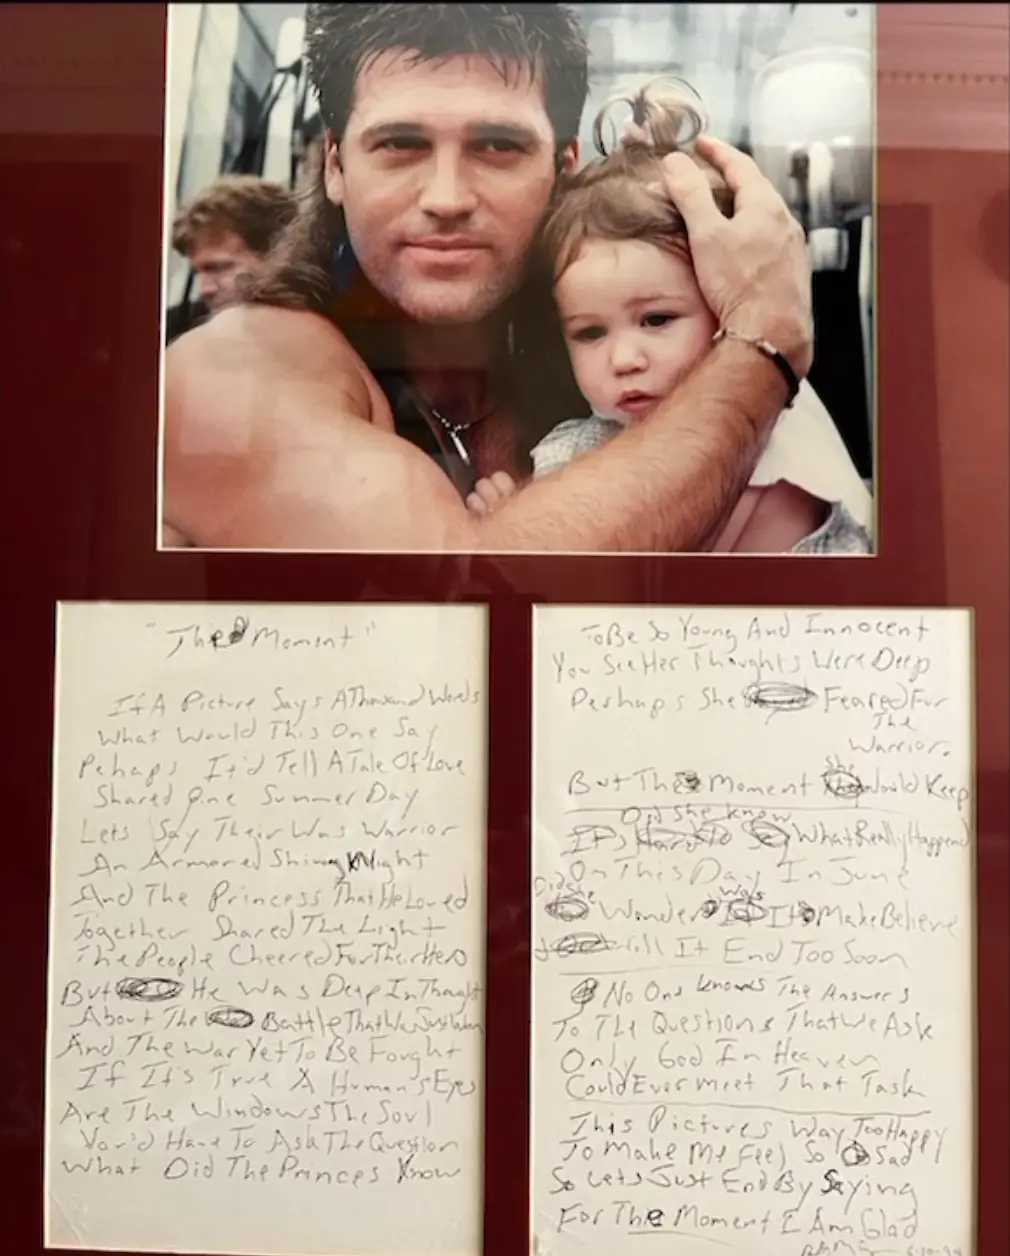 "The Moment"
If A Picture Says A Thousand Words
What Would This One Say
Pehaps It'd Tell A Tale Of Love
Shared One Summer Day
Lets Say Their Was Warrior
An Armored Shining Knight
And The Princess That He Loved
Together Shared The Light
The People Cheered For Their Hero
But He Was Deep In Thought
About The Battle That Was Just
And The War Yet To Be Fought
If It's True A Human's Eyes
Are The Windows The Soul
You'd Have To Ask The Question
What Did The Princes Know
To Be So Young And Innocent
You See Her Thoughts Were Deep
Perhaps She Feared For
The
Warrior.
She
But The Moment Would Keep
Did She Know
What Really Happened
On This Day In June
Did She Was
Wonder If It Make Believe
Will It End Too Soon
No One knows The Answers
To The Questions That We Ask
Only God In Heaven
Could Ever meet That Task
This Pictures Way Too Happy
To Make Me Feel So Sad
So Lets Just End By Saying
For The Moment I Am Glad